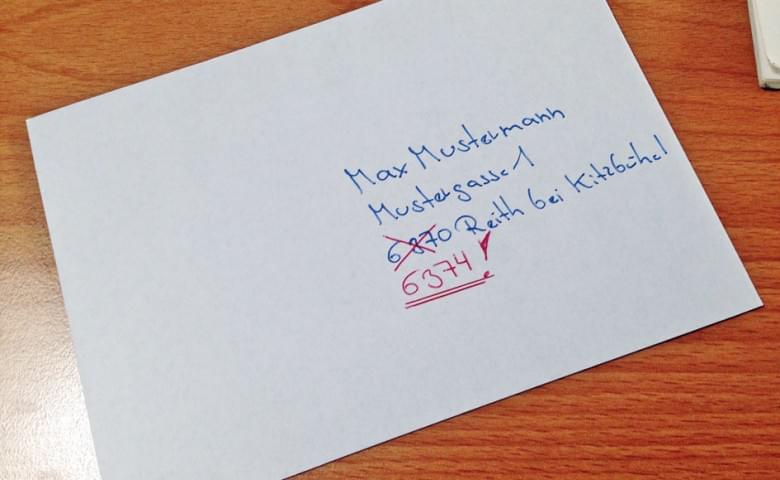 Max Mustermann
Mustergasse 1
6370 Reith bei Kitzbühel
6374!